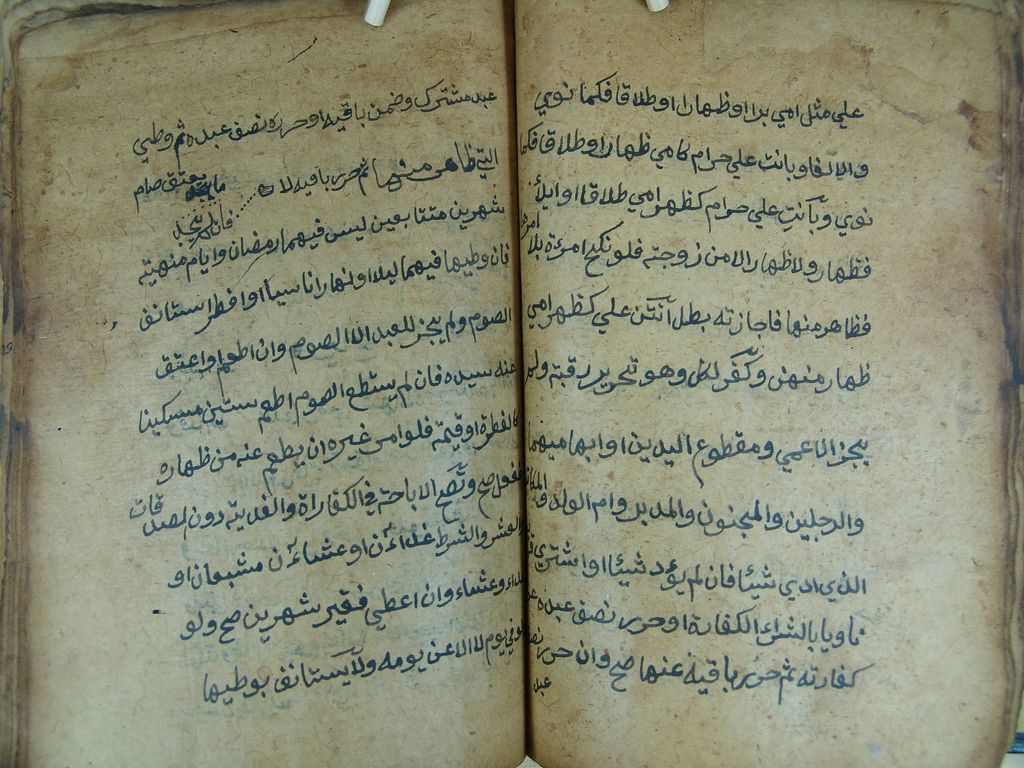 علي مثل امي برا اوظهارا اوطلاقا فكما نوي
والا لغا وبانت علي حرام كامي ظهارا اوطلاق فكما
نوي وبانت علي حرام كظهر امي طلاقا او ايلأ
فظهار ولا ظهار الا من زوجته فلو نكح امرءة بلا امرها
فظاهر منها فاجازته بطل انتن علي كظهر امي
ظهار منهن وكفر لكل وهو تحرير رقبة ولم
يجز الاعمي ومقطوع اليدين او ابهاميهما
والرجلين والمجنون والمدبر وام الولد والمكاتب
الذي ادي شيئا فان لم يؤد شيئا او اشتري
ناويا بالشراء الكفارة او حرر نصف عبده
كفارته ثم حرر باقيه عنها صح وان حرر نصف
عبد
عبد مشترك وضمن باقيه او حرره نصف عبده ثم وطي
التي ظاهر منها ثم حرر باقيه لا
فان لم يجد
ما يعتق صام
شهرين متتابعين ليس فيهما رمضان وايام منهية
فان وطيها فيهما ليلا او نهارا ناسيا او افطر استانف
الصوم ولم يجز للعبد الا الصوم وان اطعم او اعتق
عنه سيده فان لم يستطع الصوم اطعم ستين مسكينا
كالفطرة او قيمته فلو امر غيره ان يطعم عنه من ظهاره
ففعل صح وتصح الاباحة في الكفاراة والفدية دون الصدقات
والعشر والشرط غداءن او عشاءن مشبعان او
غداء وعشاء وان اعطي فقير شهرين صح ولو
في يوم لا الا عن يومه ولا يستانف بوطيها